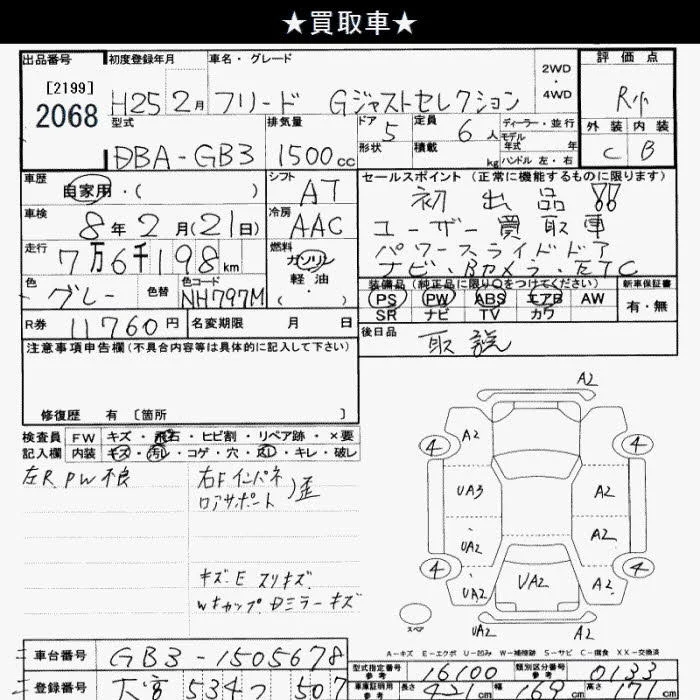 ★買取車★
出品番号 初度登録年月 車名・グレード 2WD・4WD 評価点
[2199]
2068 H25 2月 フリード Gジャストセレクション R小
型式 排気量 ドア 5 定員 6人 ディーラー・並行 外装 内装
モデル年式 年
DBA-GB3 1500cc 形状 積載 kg ハンドル 左・右 C B
車歴 自家用・( ) シフト AT セールスポイント(正常に機能するものに限ります)
初出品!!
車検 8年2月(21日) 冷房 AAC ユーザー買取車
走行 7万6千198km 燃料 ガソリン パワースライドドア
軽油 ナビ・Bカメラ・ETC
( ・ )
色 グレー 色替 色コード NH797M 装備品(純正品に限り○をつけてください) 新車保証書
PS PW ABS エアB AW 有・無
SR ナビ TV カワ
R券 11760円 名変期限 月 日 後日品 取説
注意事項申告欄(不具合内容等は具体的に記入して下さい)
修復歴 有 [箇所 ]
検査員 FW キズ・飛石・ヒビ割・リペア跡・×要
記入欄 内装 キズ・汚レ・コゲ・穴・凹・キレ・破レ
左R.PW不良 右Fインパネ
ロアサポート )歪
キズE スリキズ
Wキャップ.Dミラーキズ
A2
4 A2 4
UA3 A2
UA2 A2
4 UA2 UA2 A2 4
スペア UA2 A2
A-キズ E-エクボ U-凹み W-補修跡 S-サビ C-腐食 XX-交換済
車台番号 GB3-1505678 型式指定番号 参考 16100 類別区分番号 参考 0133
登録番号 大宮 534 507 車庫証明用 参考 長さ 421 幅 169 高さ 171 cm